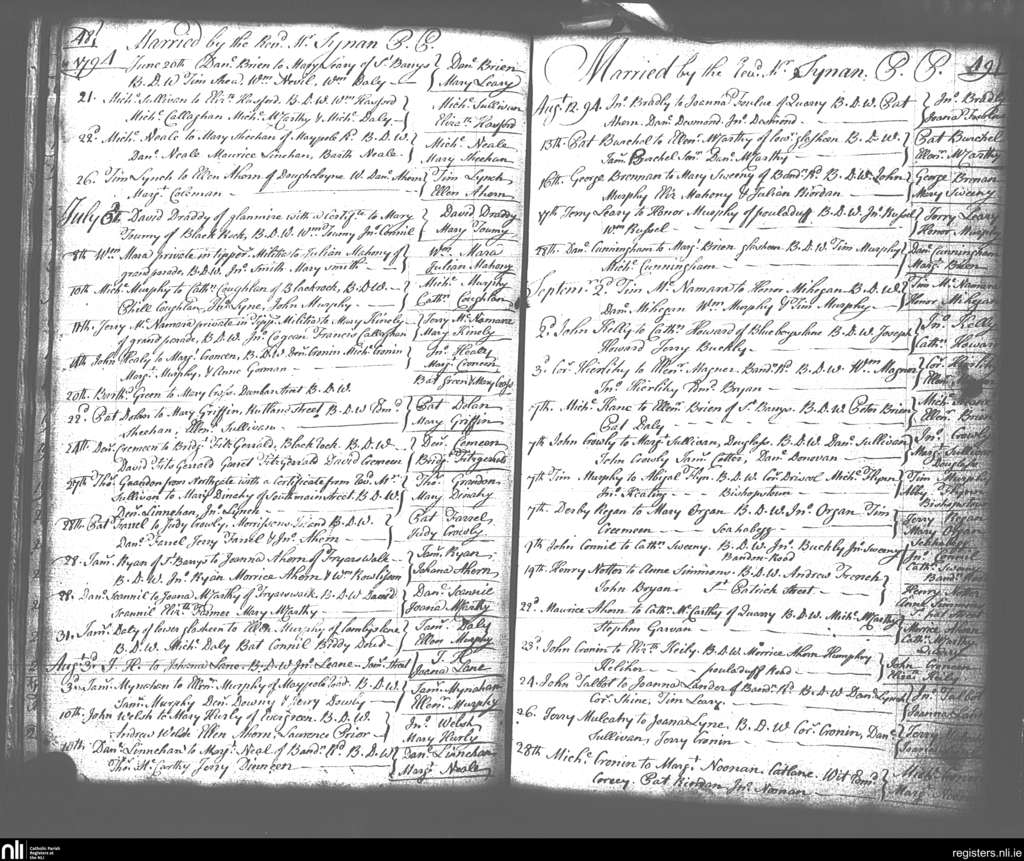 48
Married by the Revd. Mr. Synan P. P.
1794
June 20th Danl. Brien to Mary Leary of St. Barrys
B.D.W Tim Shea, Wm. Nevil, Wm Daly
Danl. Brien
Mary Leary
21. Michl. Sullivan to Elizth. Hosford B.D.W. Wm Hosford
Michl. Callaghan Michl. McCarthy & Michl. Daly
Michl. Sullivan
Elizath. Hosford
22d. Michl. Neale to Mary Sheehan of Maypole Rd. B.D.W.
Danl. Neale Maurice Linehan, Barth Neale
Michl. Neale
Mary Sheehan
26. Tim Lynch to Ellen Ahern of Doughcloyne W. Danl. Ahern
Margt. Coleman
Tim Lynch
Ellen Ahern
July David Draddy of glanmire with a Certife. to Mary
Toumy of Black Rock, B.D.W. Wm. Toumy Jno. Connil
David Draddy
Mary Toumy
8th Wm. Mara private in tipper. Militia to Julian Mahony of
grand parade, B.D.W. Jno. Smith Mary Smith
Wm. Mara
Julian Mahony
10th. Michl. Murphy to Cathn. Coughlan of Blackrock, B.D.W.
Phill Coughlan, Lyne, John Murphy
Michl. Murphy
Cathn. Coughlan
11th. Jerry McNamara private in Tipp. Militia to Mary Kinely
of grand parade, B.D.W. Jno. Cogean Francis Callaghan
Jerry McNamara
Mary Kinely
14th John Healy to Margt. Croneen, B.D.W Denl. Cronin Michl. Cronin
Margt. Murphy, & Anne Gorman
Jno. Healy
Margt. Croneen
20th. Barth. Green to Mary Cross. Dunbar Street B.D.W.
Bat Green & Mary Cross
22d. Pat Dolan to Mary Griffin, Rutland Street B.D.W Edmd.
Sheehan, Ellen Sullivan
Pat Dolan
Mary Griffin
24th Denl. Cremeen to Bridgt. FitzGerrald, Black Rock. B.D.W.
David FitzGerrald Garret FitzGerrald David Cremeen
Denl. Cremeen
Bridgt. Fitzgerald
27th Thos. Graandon from Northgate with a Certificate from Revd. Mr.
Sullivan to Margt Dinahy of Southmain Street. B.D.W
Denl. Linnehan, Jno. Lynch
Thos. Grandon
Mary Dinahy
28th. Pat Farrel to Judy Crowly, Morrissons Island B.D.W.
Danl. Farrel Jerry Farrel & Jno. Ahern
Pat Farrel
Judy Crowly
28. Jams. Ryan of St. Barrys to Joanna Ahern of Fryars Walk
B.D.W. Jno. Ryan Morrice Ahern & Wm Rawlisson
Jams. Ryan
Johana Ahern
28. Danl. Scannil to Joana McCarthy of Fryarswalk. B.D.W David
Scannil Elizth. Mary McCarthy
Danl. Scannil
Joana McCarthy
31. Jams. Daly of lower glasheen to Ellen Murphy of Cambyslane
B.D.W. Michl. Daly Bat Connil Biddy Doud
Jams. Daly
Ellen Murphy
Augst. 3d J. H. to Johana Lane. B.D.W Jno. Leane James Street
J. H.
Joana Lane
3d. Jams. Mynahan to Ellen. Murphy of Maypole road. B.D.W.
Jams. Murphy Den. Downy & Jerry Downy
Jams. Mynahan
Ellen. Murphy
10th. John Welsh to Mary Hurly of Evergreen. B.D.W.
Andrew Welsh Ellen Ahern Laurence Prior
Jno. Welsh
Mary Hurly
10th. Danl. Linnehan to Margt. Neal of Bandn. Rd. B.D.W
Thos. McCarthy Jerry Dinneen
Danl. Linnehan
Margt. Neale
49
Married by the Revd. Mr. Synan. P. P.
Augt. 12. 94. Jno. Bradly to Joanna of Quarry B.D.W. Pat
Ahern. Danl. Desmond. Jno. Desmond
Jno. Bradly
13th. Pat Burchel to Ellen. McCarthy of lowr. glasheen B.D.W.
Jams. Burchel Danl. McCarthy
Pat Burchel
Ellen. McCarthy
16th. George Brennan to Mary Sweeny of Bandn. Rd. B.D.W. John
Murphy Eliz. Mahony & Julian Riordan
George Brenan
Mary Sweeny
17th Jerry Leary to Honor Murphy of pouladuff B.D.W. Jno. Russel
Wm Russel
Jerry Leary
Honor. Murphy
28th. Danl. Cunningham to Margt. Brien glasheen B.D.W Tim Murphy
Michl. Cunningham
Danl. Cunningham
Margt. Brien
Septemr. 2d. Tim McNamara to Honor Mihegan. B.D.W.
Danl. Mihegan Wm. Murphy & Tim Murphy
Tim McNamara
Honor Mihegan
2d. John Kelly to Cathn. Howard of Blueboyslane B.D.W Joseph
Howard Jerry Buckly
Jno. Kelly
Cathn. Howard
3d. Cor. Hierlihy to Ellen. Magner. Bandn. Rd. B.D.W. Wm. Magner
Jno. Hierlihy, Edmd. Bryan
Cor. Hierlihy
Ellen
7th. Michl. Kane to Ellen. Brien of St. Barrys. B.D.W. Peter Brien
Pat Daly
Michl. Kane
Ellen. Brien
7th John Crowly to Margt. Sullivan, Douglass. B.D.W. Danl. Sullivan
John Crowly Jams. Cotter, Danl. Donovan
Jno. Crowly
Margt. Sullivan
Douglass
7th Tim Murphy to Abigal Flyn. B.D.W. Cor. Driscol Michl. Flynn
Jno. Keating Bishopstown
Tim Murphy
Abby Flynn
Bishopstown
7th. Derby Regan to Mary Organ B.D.W. Jno. Organ Tim
Cremeen Seahabegg
Mary Organ
9th John Connil to Cathn. Sweeny. B.D.W. Jno. Buckly Jno. Sweeny
Bandon Road
Jno. Connil
Cathn. Sweeny
Bandn. Road
19th. Henry Notter to Anne Simmons. B.D.W. Andrew French
John Bryan St. Patrick Street
Henry Notter
Anne Simmons
22d. Maurice Ahern to Cathn. McCarthy of Quarry B.D.W. Michl. McCarthy
Stephen Garvan
Morrice Ahern
Cathn. McCarthy
Quarry
23d. John Cronin to Elizth. Heily B.D.W. Morrice Ahern Humphry
Kelcher pouladuff Road
John Croneen
Elizath. Heily
24. John Talbot to Joanna Landers of Bandn. Rd. B.D.W Danl. Lynch
Cor. Shine, Tim Leary
Jno. Talbot
Joanna Landers
26. Jerry Mulcahy to Joana Lyne. B.D.W Cor. Cronin, Danl.
Sullivan, Jerry Cronin
Jerry
Joana
28th. Michl. Cronin to Margt. Noonan. Catlane. Wit Edmd.
Corcoy. Pat Riordan Jno. Noonan
Michl. Cronin
Margt.
nli
Catholic Parish
Registers at
the NLI
registers.nli.ie